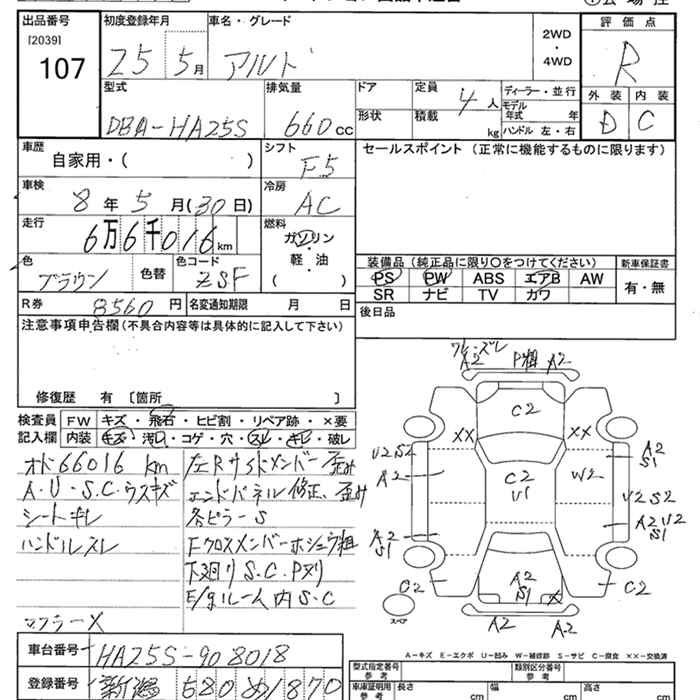 出品番号 初度登録年月 車名・グレード 評価点
[2039] 107 25 5月 アルト 2WD・4WD R
型式 排気量 ドア 定員 ディーラー・並行 外装 内装
形状 積載 モデル年式 年
DBA-HA25S 660cc 4人 kg ハンドル 左・右 D C
車歴 シフト セールスポイント (正常に機能するものに限ります)
自家用・( ) F5
車検 冷房
8年5月(30日) AC
走行 燃料
6万6千016km ガソリン・軽・油 ( )
色 色替 色コード 装備品 (純正品に限り〇をつけてください) 新車保証書
ブラウン ZSF PS PW ABS エアB AW 有・無
SR ナビ TV カワ
R券 8560円 名変通知期限 月 日 後日品
注意事項申告欄(不具合内容等は具体的に記入して下さい)
修復歴 有 〔箇所 〕
検査員 FW キズ・飛石・ヒビ割・リペア跡・×要
記入欄 内装 キズ・汚レ・コゲ・穴・スレ・キレ・破レ
オド66016 km 左Rサイドメンバー歪み
A・U・S.C.ウスキズ エンドパネル修正、歪み
シートキレ 各ピラーS
ハンドルスレ Fクロスメンバーホシュウ粗
下廻りS.C.Pヌリ
E/gルーム内S.C
マフラーX
ワレ・ズレ
A2 P粗 A2
C2
XX XX
U2S2 A2 S1
A2 C2 U1 W2
U2S2
A2 S1 A2U2 S1
C2 A2 S1 X C2
スペア A2 A2
車台番号 HA25S-908018
A-キズ E-エクボ U-凹み W-補修跡 S-サビ C-腐食 XX-交換済
登録番号 新潟 580 め1870
型式指定番号 参考 類別区分番号 参考
車庫証明用 参考 長さ cm 幅 cm 高さ cm